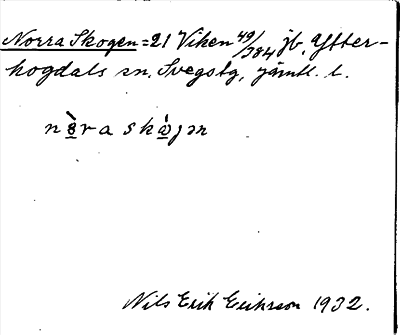 Norra Skogen = 21 Viken 49/384 jb, Ytter-
hogdals sn. Svegs tg, Jämtl. l.
Nils Erik Eriksson 1932.